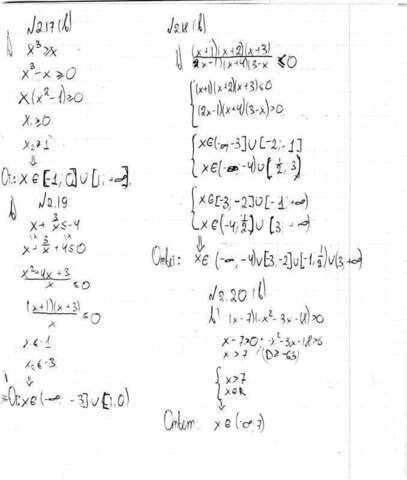 N2.17(b)
b) x³≥x
x³-x≥0
x(x²-1)≥0
x≥0
⇓
x∈[-1;0]∪[1;+∞)
N2.19
b)
x+3/x≤-4
x+3/x+4≤0
(x²+4x+3)/x≤0
((x+1)(x+3))/x≤0
⇓
x∈(-∞;-3]∪[1;0)
N2.18(b)
((x+1)(x+2)(x+3))/((2x-1)(x+4)(3-x))≤0
{(x+1)(x+2)(x+3)≤0
(2x-1)(x+4)(3-x)>0
{x∈(-∞;-3]∪[-2;-1]
x∈(-∞;-4)∪(1/2;3)
{x∈[-3;-2]∪[-1;+∞)
x∈(-4;1/2)∪(3;+∞)
⇓
Ответ: x∈(-∞;-4)∪[-3;-2]∪[-1;1/2)∪(3;+∞)
N2.20(b)
b) (x-7)(-x²-3x-18)>0
x-7>0; -x²-3x-18>0
x>7 (D=-63)
{x>7
x∈R
⇓
Ответ: x∈(-∞;7)